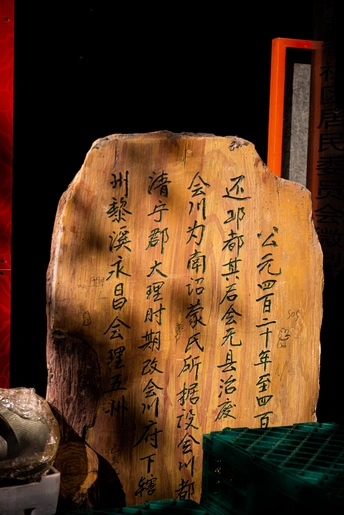 社区居民委
公元四百二十年至四百
还邛都其后会无县治废
会川为南诏蒙氏所据设会川都
清宁郡大理时期改会川府下辖
州黎溪永昌会理五州